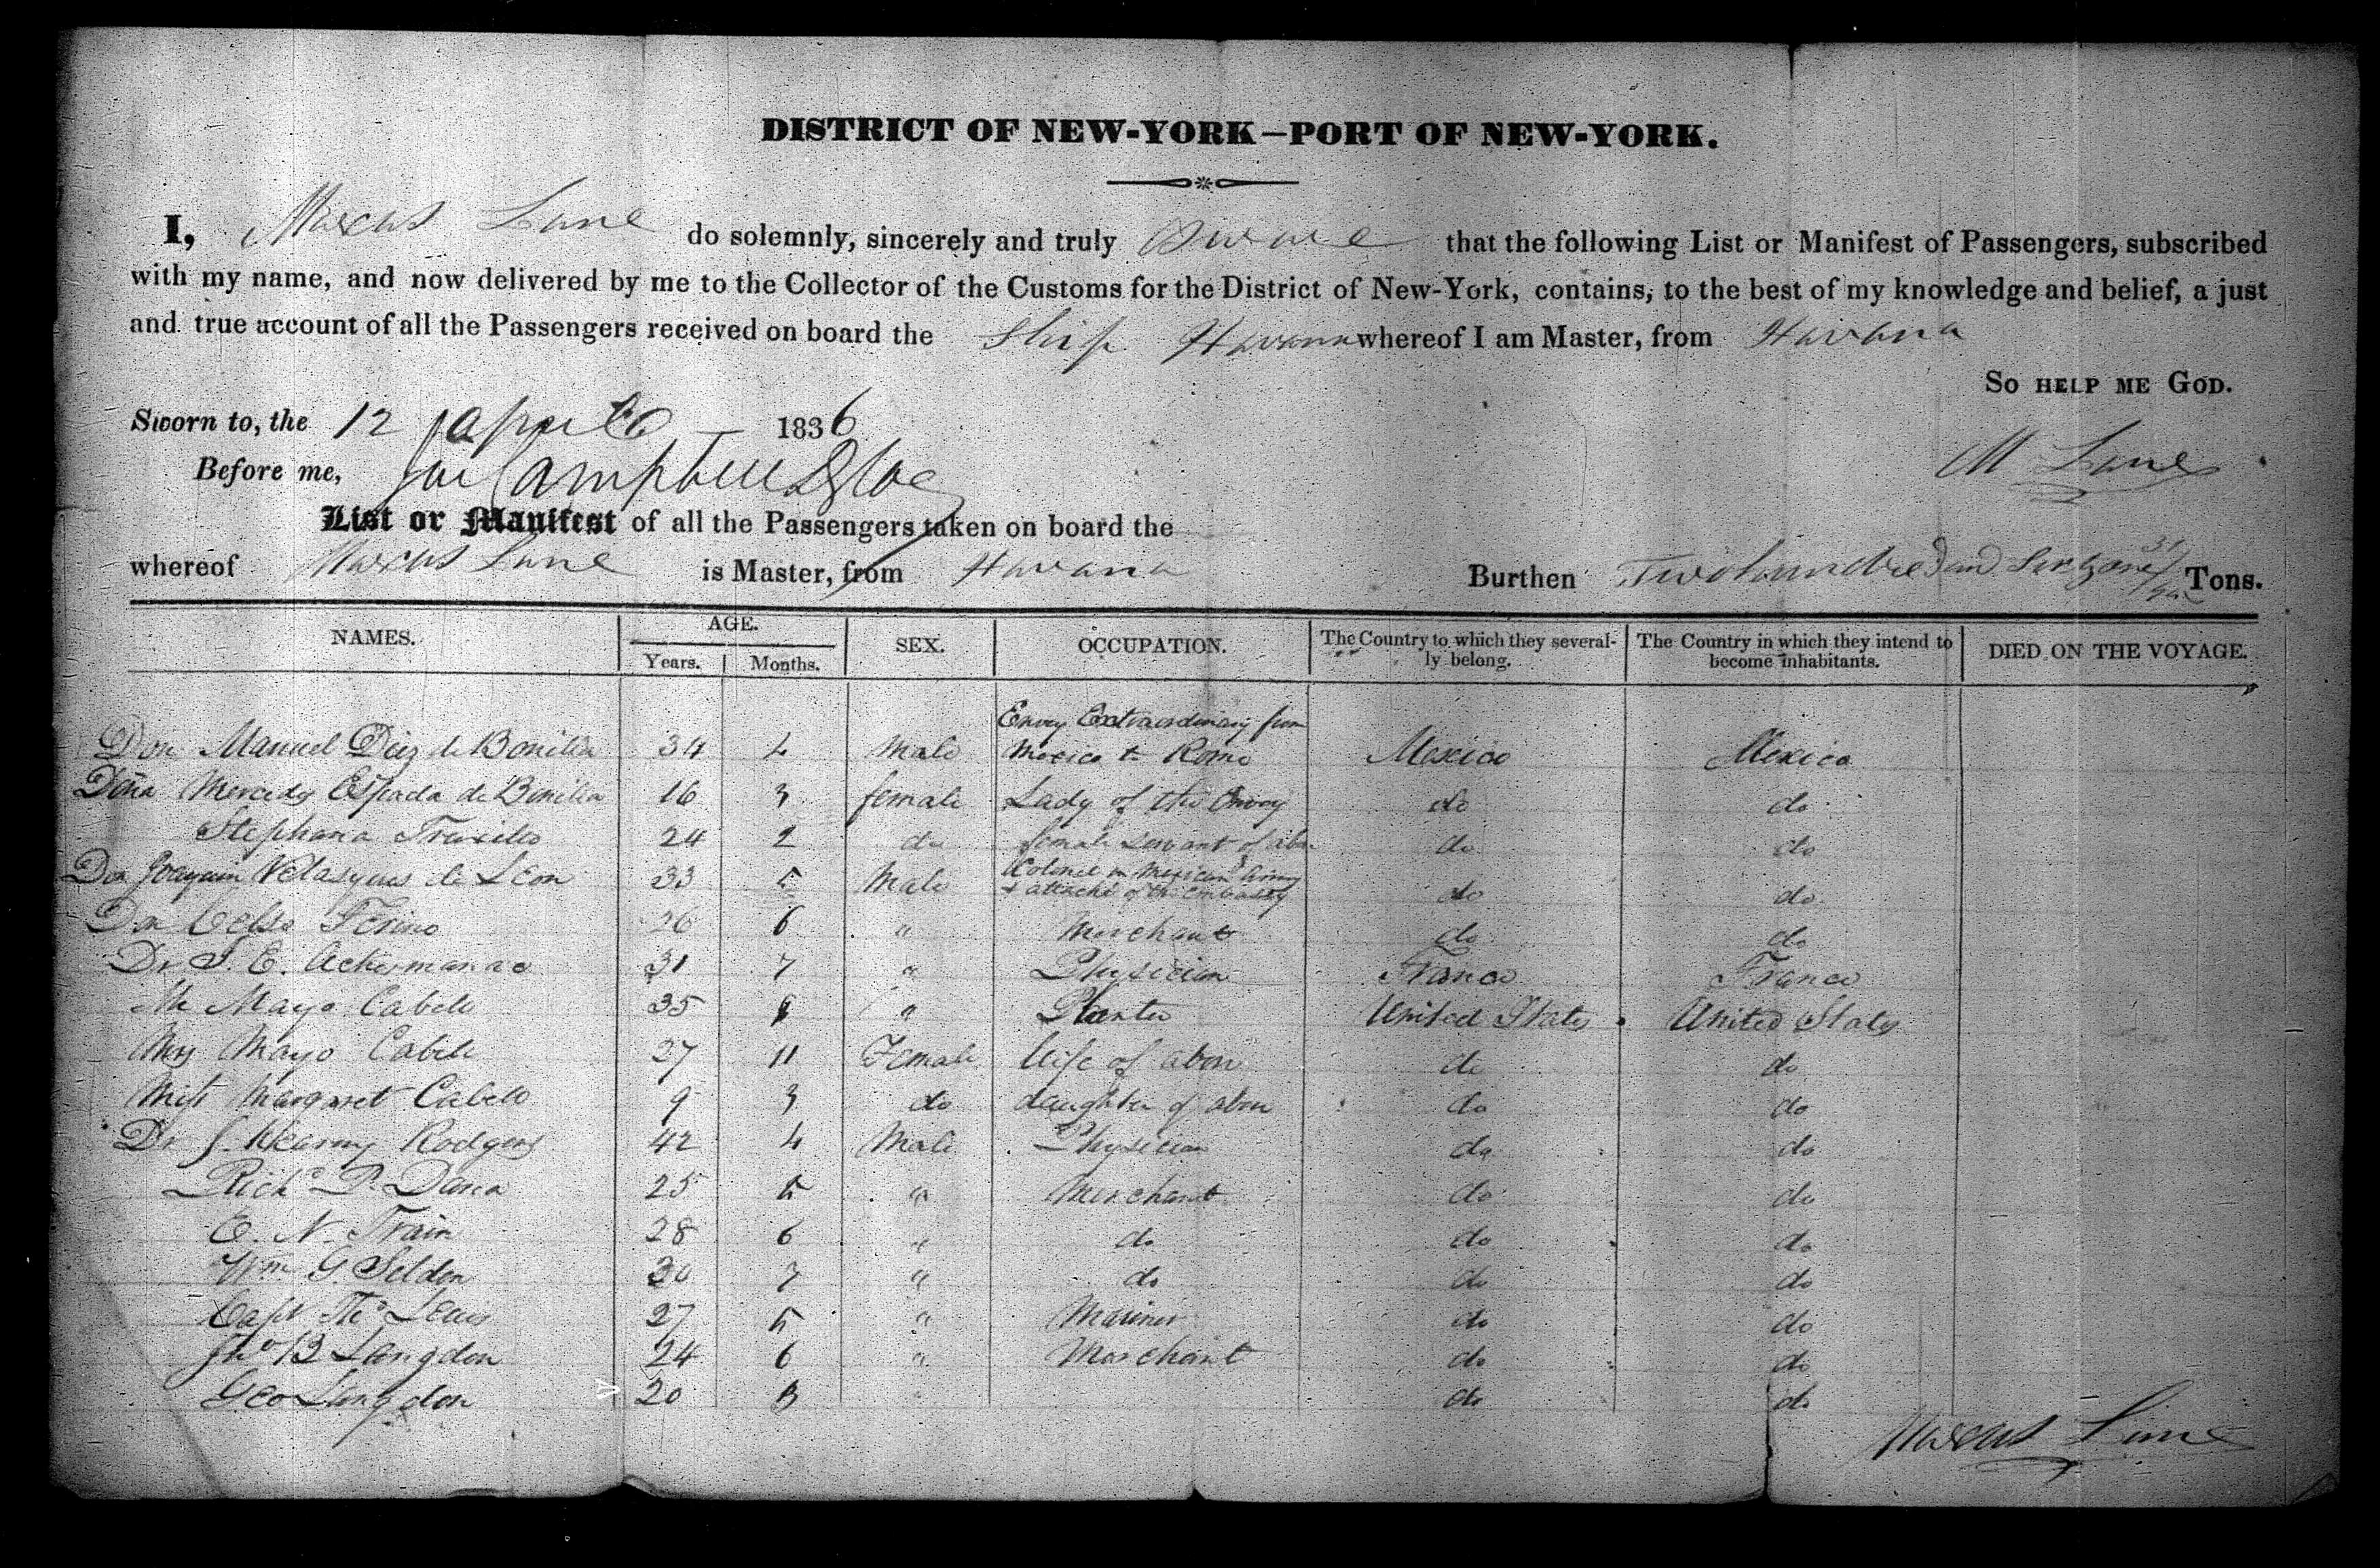 DISTRICT OF NEW-YORK—PORT OF NEW-YORK.
I, Marcus Lane do solemnly, sincerely and truly Sware that the following List or Manifest of Passengers, subscribed
with my name, and now delivered by me to the Collector of the Customs for the District of New-York, contains, to the best of my knowledge and belief, a just
and true account of all the Passengers received on board the Ship Havana whereof I am Master, from Havana
So HELP ME GOD.
Sworn to, the 12 April 1836
M Lane
Before me, Campbell
List or Manifest of all the Passengers taken on board the
whereof Marcus Lane is Master, from Havana Burthen Two hundred and Sixty one Tons.
NAMES. AGE. Years. Months. SEX. OCCUPATION. The Country to which they severally belong. The Country in which they intend to become inhabitants. DIED ON THE VOYAGE.
Envoy Extraordinary from
Don Manuel Diez de Bonilla 34 4 Male Mexico to Rome Mexico Mexico
Doña Mercedes Espada de Bonilla 16 3 female Lady of the Envoy do do
Stephana 24 2 do female servant of above do do
Colonel in Mexican Army
Don Joaquin Velasques de Leon 33 5 Male & attaché of the embassy do do
Don Celso 26 6 " Merchant do do
Dr J. E. 31 7 " Physician France France
Mr Mayo Cabell 35 " Planter United States United States
Mrs Mayo Cabell 27 11 Female Wife of above do do
Miss Margaret Cabell 9 3 do daughter of above do do
Dr J. Kearny Rodgers 42 4 Male Physician do do
Richd P. Dana 25 5 " Merchant do do
E. N. Train 28 6 " do do do
Wm G Selden 30 7 " do do do
Capt Thos 27 5 " Mariner do do
Jno B Langdon 24 6 " Merchant do do
Geo Langdon 20 8 do do
Marcus Lane